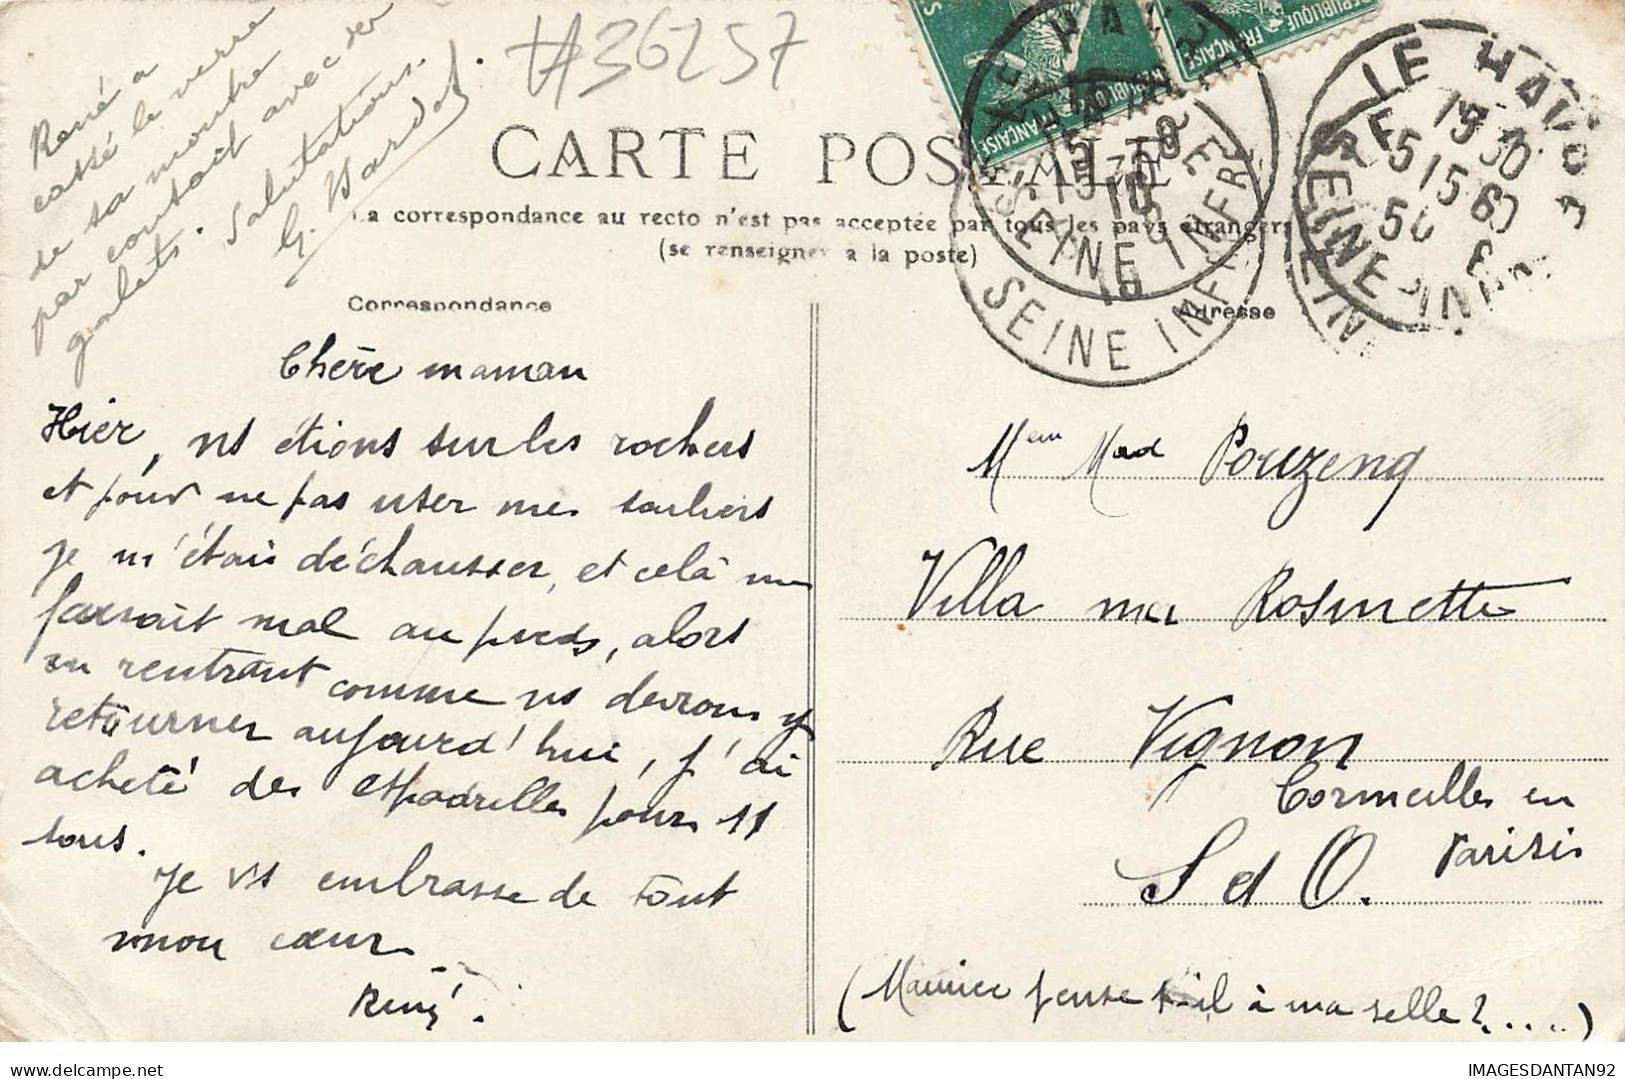 #36257
René a
cassé le verre
de sa montre
par contact avec des
galets. Salutations.
CARTE POSTALE
La correspondance au recto n'est pas acceptée par tous les pays étrangers
(se renseigner à la poste)
Correspondance
Adresse
RÉPUBLIQUE FRANÇAISE
LE HAVRE
SEINE INFRE
SEINE INFRE
Chère maman
Hier, ns étions sur les rochers
et pour ne pas user mes souliers
je m'étais déchausser, et celà me
faisait mal au pieds, alors
en rentrant comme ns devrons y
retourner aujourd'hui, j'ai
acheté des espadrilles pour
tous.
Je vs embrasse de tout
mon cœur.
René.
Mad Pouzenq
Villa ma Rosinette
Rue Vignon
Cormeilles en
Parisis
S et O.
(Maurice pense t-il à ma selle?.....)
IMAGESDANTAN92